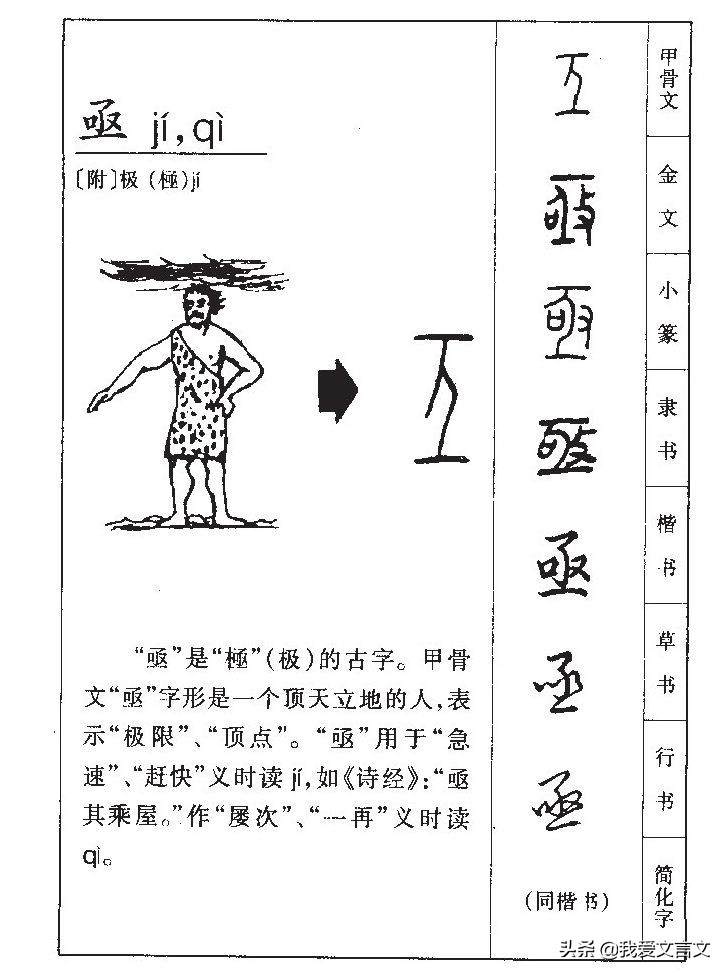 亟 jí,qì
〔附〕极(極)jí
“亟”是“極”(极)的古字。甲骨
文“亟”字形是一个顶天立地的人,表
示“极限”、“顶点”。“亟”用于“急
速”、“赶快”义时读 jí,如《诗经》:“亟
其乘屋。”作“屡次”、“一再”义时读
qì。
亟 甲骨文
亟 金文
亟 小篆
亟 隶书
亟 楷书
亟 草书
亟 行书
(同楷书) 简化字
头条 @我爱文言文